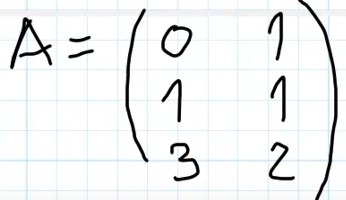 A = ( 0 1
1 1
3 2 )